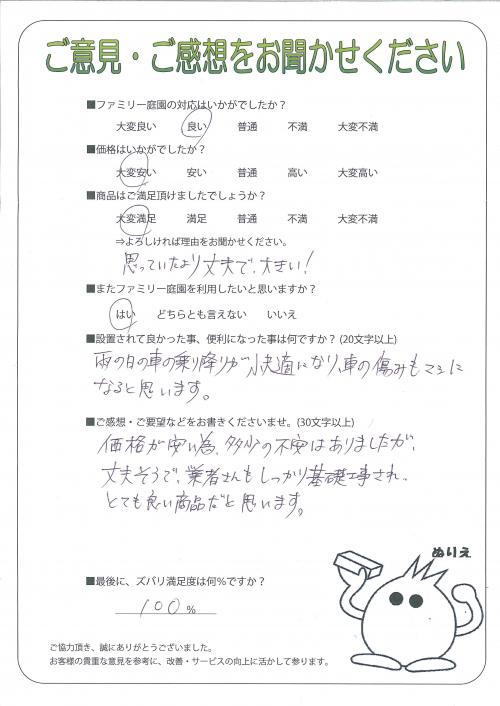 ご意見・ご感想をお聞かせください
■ファミリー庭園の対応はいかがでしたか？
大変良い 良い 普通 不満 大変不満
■価格はいかがでしたか？
大変安い 安い 普通 高い 大変高い
■商品はご満足頂けましたでしょうか？
大変満足 満足 普通 不満 大変不満
⇒よろしければ理由をお聞かせください。
思っていたより丈夫で、大きい！
■またファミリー庭園を利用したいと思いますか？
はい どちらとも言えない いいえ
■設置されて良かった事、便利になった事は何ですか？(20文字以上)
雨の日の車の乗り降りが快適になり、車の傷みもマシに
なると思います。
■ご感想・ご要望などをお書きくださいませ。(30文字以上)
価格が安い為、多少の不安はありましたが、
丈夫そうで、業者さんもしっかり基礎工事され、
とても良い商品だと思います。
ぬりえ
■最後に、ズバリ満足度は何％ですか？
100 %
ご協力頂き、誠にありがとうございました。
お客様の貴重な意見を参考に、改善・サービスの向上に活かして参ります。